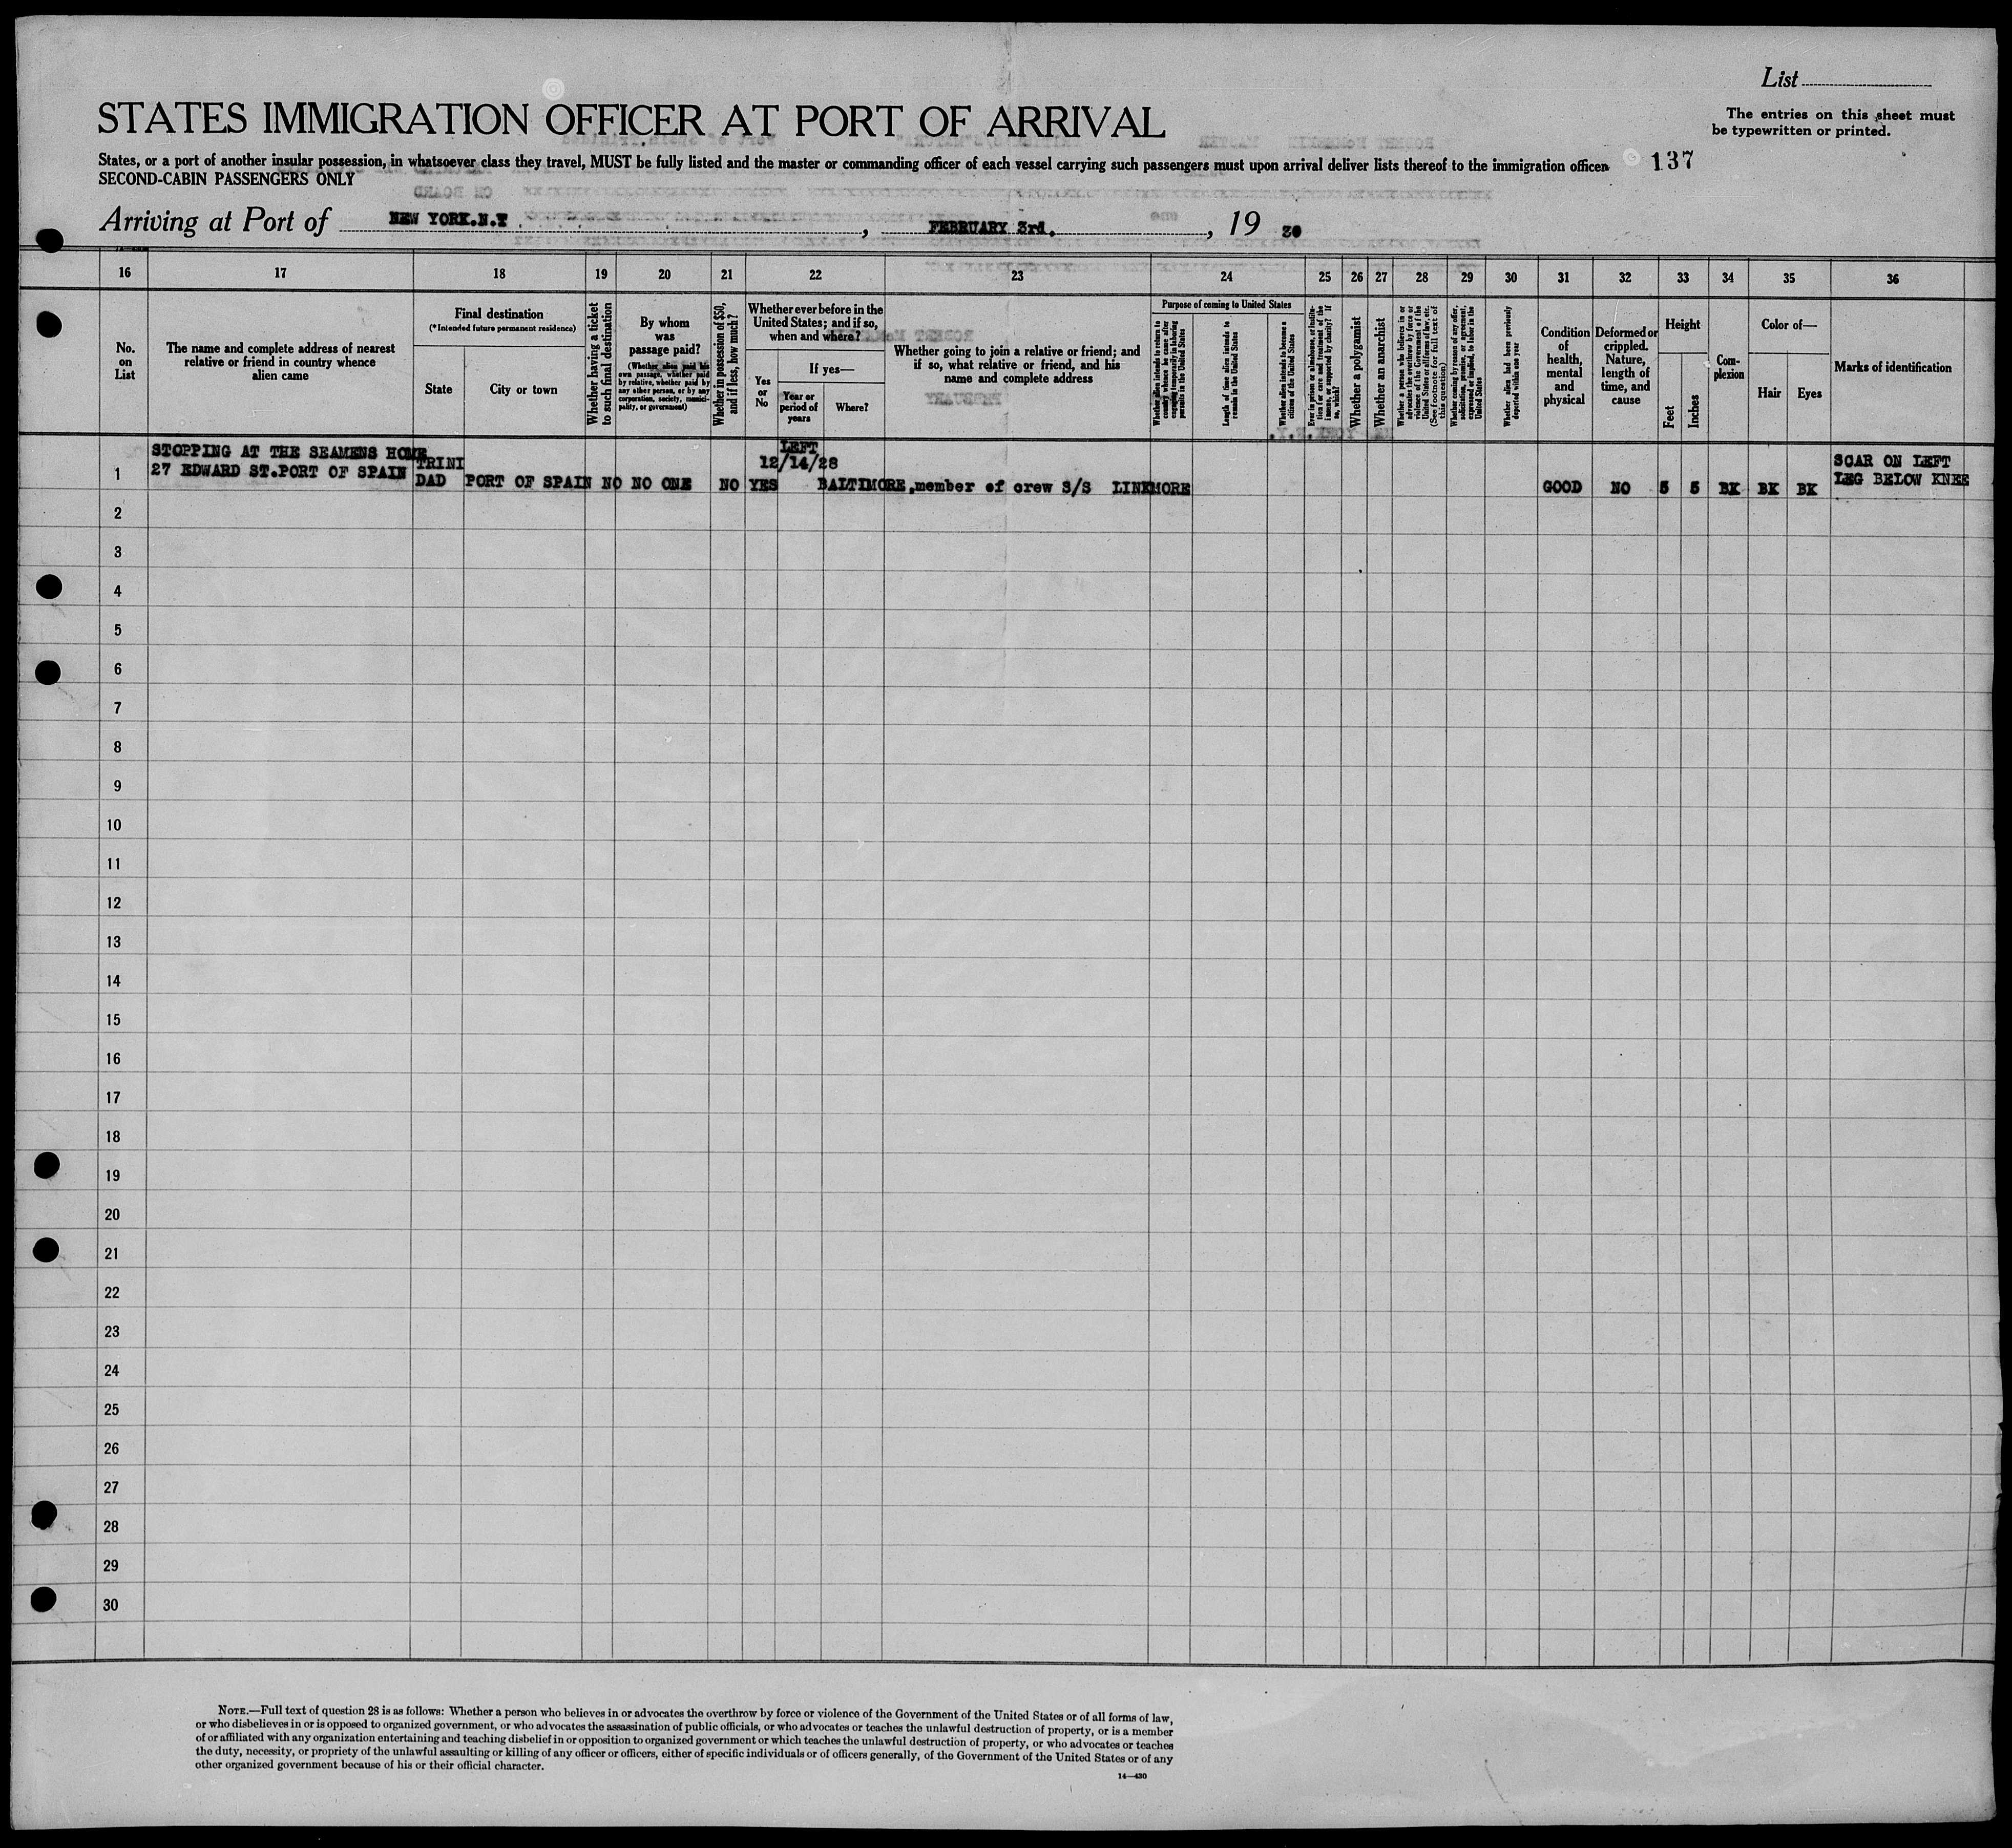 List
STATES IMMIGRATION OFFICER AT PORT OF ARRIVAL
The entries on this sheet must
be typewritten or printed.
States, or a port of another insular possession, in whatsoever class they travel, MUST be fully listed and the master or commanding officer of each vessel carrying such passengers must upon arrival deliver lists thereof to the immigration officer
137
SECOND-CABIN PASSENGERS ONLY
Arriving at Port of NEW YORK.N.Y , FEBRUARY 3rd. , 19 30
16 17 18 19 20 21 22 23 24 25 26 27 28 29 30 31 32 33 34 35 36
No.
on
List
The name and complete address of nearest
relative or friend in country whence
alien came
Final destination
(*Intended future permanent residence)
State
City or town
Whether having a ticket
to such final destination
By whom
was
passage paid?
(Whether alien paid his
own passage, whether paid
by relative, whether paid by
any other person, or by any
corporation, society, munici-
pality, or government)
Whether in possession of $50,
and if less, how much?
Whether ever before in the
United States; and if so,
when and where?
Yes
or
No
If yes—
Year or
period of
years
Where?
Whether going to join a relative or friend; and
if so, what relative or friend, and his
name and complete address
Purpose of coming to United States
Whether alien intends to return to
country whence he came after
engaging temporarily in laboring
pursuits in the United States
Length of time alien intends to
remain in the United States
Whether alien intends to become a
citizen of the United States
Ever in prison or almshouse, or institu-
tion for care and treatment of the
insane, or supported by charity? If
so, which?
Whether a polygamist
Whether an anarchist
Whether a person who believes in or
advocates the overthrow by force or
violence of the Government of the
United States or all forms of law, etc.
(See footnote for full text of
this question)
Whether coming by reason of any offer,
solicitation, promise, or agreement,
expressed or implied, to labor in the
United States
Whether alien had been previously
deported within one year
Condition
of
health,
mental
and
physical
Deformed or
crippled.
Nature,
length of
time, and
cause
Height
Feet
Inches
Com-
plexion
Color of—
Hair
Eyes
Marks of identification
STOPPING AT THE SEAMENS HOME
27 EDWARD ST.PORT OF SPAIN
1
TRINI
DAD
PORT OF SPAIN NO NO ONE NO YES
LEFT
12/14/28
BALTIMORE,member of crew S/S LINKMORE
GOOD NO 5 5 BK BK BK
SCAR ON LEFT
LEG BELOW KNEE
2
3
4
5
6
7
8
9
10
11
12
13
14
15
16
17
18
19
20
21
22
23
24
25
26
27
28
29
30
NOTE.—Full text of question 28 is as follows: Whether a person who believes in or advocates the overthrow by force or violence of the Government of the United States or of all forms of law,
or who disbelieves in or is opposed to organized government, or who advocates the assassination of public officials, or who advocates or teaches the unlawful destruction of property, or is a member
of or affiliated with any organization entertaining and teaching disbelief in or opposition to organized government or which teaches the unlawful destruction of property, or who advocates or teaches
the duty, necessity, or propriety of the unlawful assaulting or killing of any officer or officers, either of specific individuals or of officers generally, of the Government of the United States or of any
other organized government because of his or their official character.
14—430